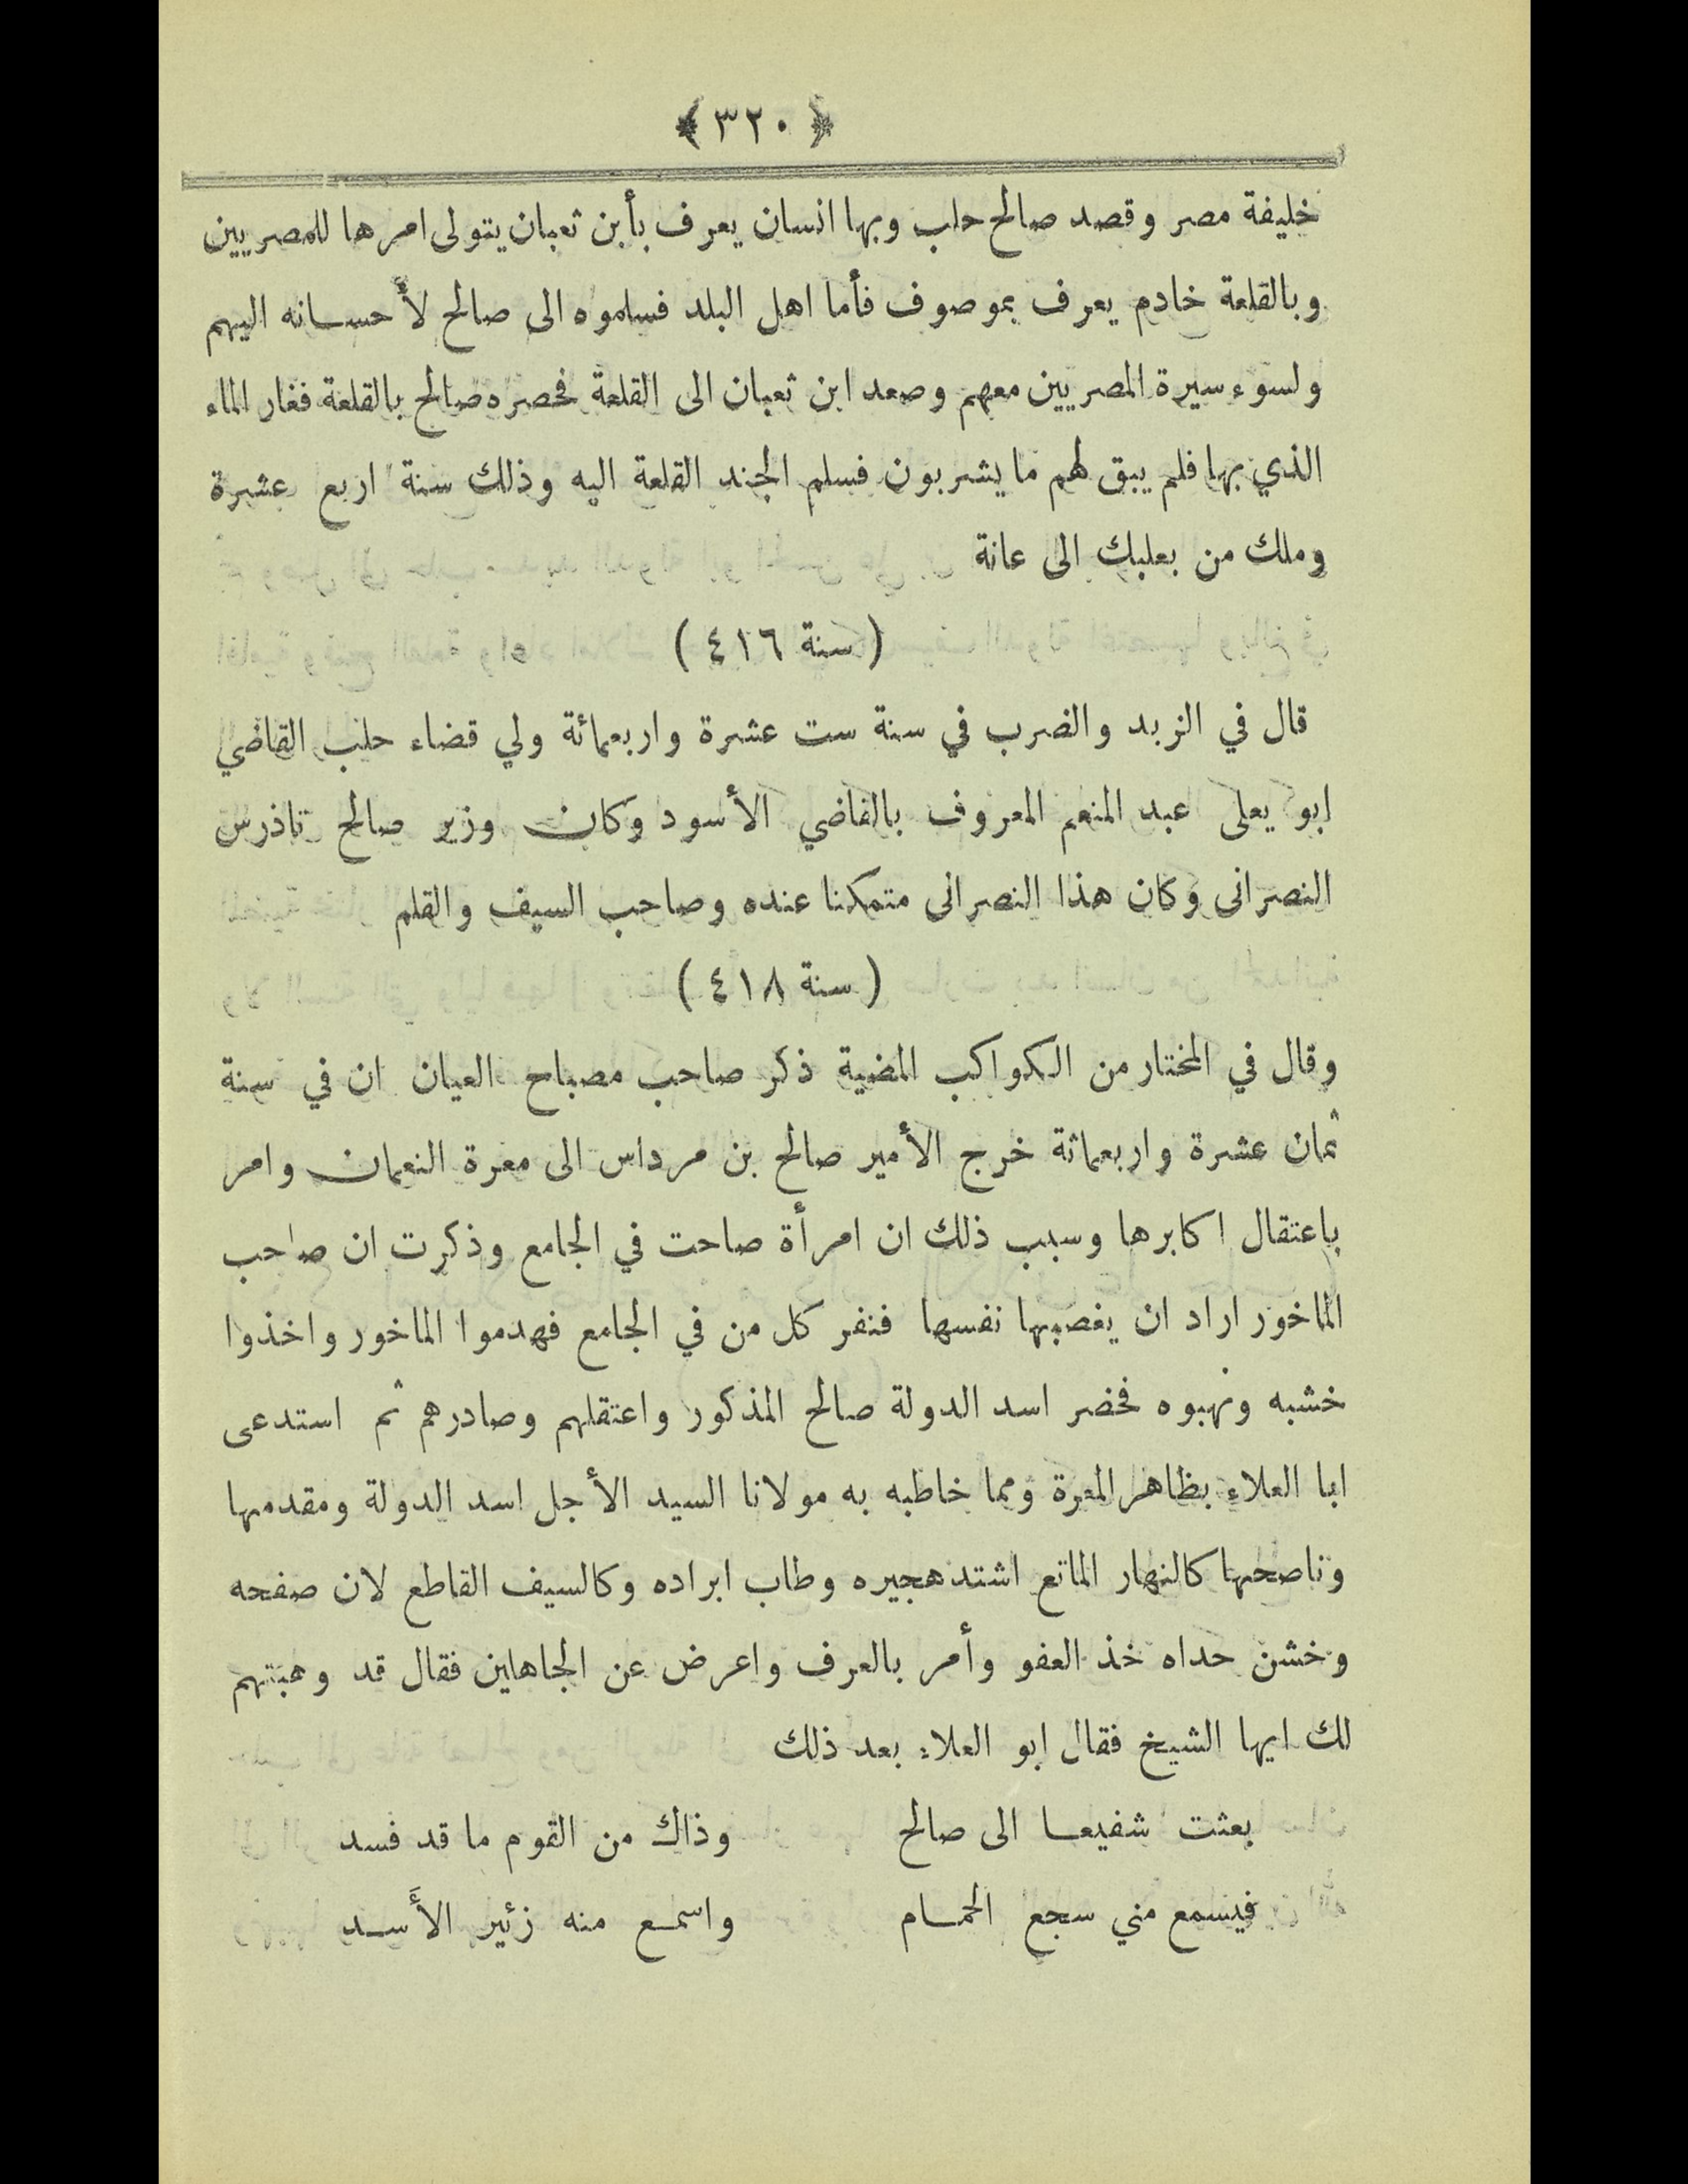 ﴿ ٣٢٠ ﴾
خليفة مصر وقصد صالح حلب وبها انسان يعرف بأبن ثعبان يتولى امرها للمصريين
وبالقلعة خادم يعرف بموصوف فأما اهل البلد فسلموه الى صالح لأحسانه اليهم
ولسوء سيرة المصريين معهم وصعد ابن ثعبان الى القلعة فحصره صالح بالقلعة فغار الماء
الذي بها فلم يبق لهم ما يشربون فسلم الجند القلعة اليه وذلك سنة اربع عشرة
وملك من بعلبك الى عانة
( سنة ٤١٦ )
قال في الزبد والضرب في سنة ست عشرة واربعمائة ولي قضاء حلب القاضي
ابو يعلى عبد المنعم المعروف بالقاضي الأسود وكان وزير صالح تاذرس
النصرانى وكان هذا النصرانى متمكنا عنده وصاحب السيف والقلم
( سنة ٤١٨ )
وقال في المختار من الكواكب المضية ذكر صاحب مصباح العيان ان في سنة
ثمان عشرة واربعمائة خرج الأمير صالح بن مرداس الى معرة النعمان وامر
باعتقال اكابرها وسبب ذلك ان امرأة صاحت في الجامع وذكرت ان صاحب
الماخور اراد ان يغصبها نفسها فنفر كل من في الجامع فهدموا الماخور واخذوا
خشبه ونهبوه فحضر اسد الدولة صالح المذكور واعتقلهم وصادرهم ثم استدعى
ابا العلاء بظاهر المعرة ومما خاطبه به مولانا السيد الأجل اسد الدولة ومقدمها
وناصحها كالنهار الماتع اشتد هجيره وطاب ابراده وكالسيف القاطع لان صفحه
وخشن حداه خذ العفو وأمر بالعرف واعرض عن الجاهلين فقال قد وهبتهم
لك ايها الشيخ فقال ابو العلاء بعد ذلك
بعثت شفيعا الى صالح وذاك من القوم ما قد فسد
فيسمع مني سجع الحمام واسمع منه زئير الأَسد